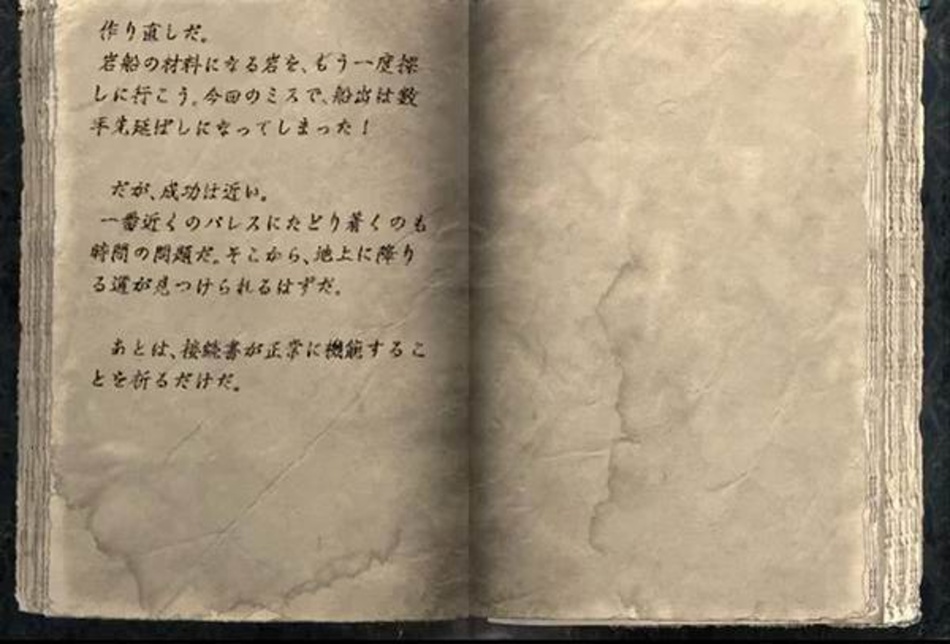 作り直しだ。
岩船の材料になる岩を、もう一度探
しに行こう。今回のミスで、船出は数
年先延ばしになってしまった！
だが、成功は近い。
一番近くのパレスにたどり着くのも
時間の問題だ。そこから、地上に降り
る道が見つけられるはずだ。
あとは、接続書が正常に機能するこ
とを祈るだけだ。